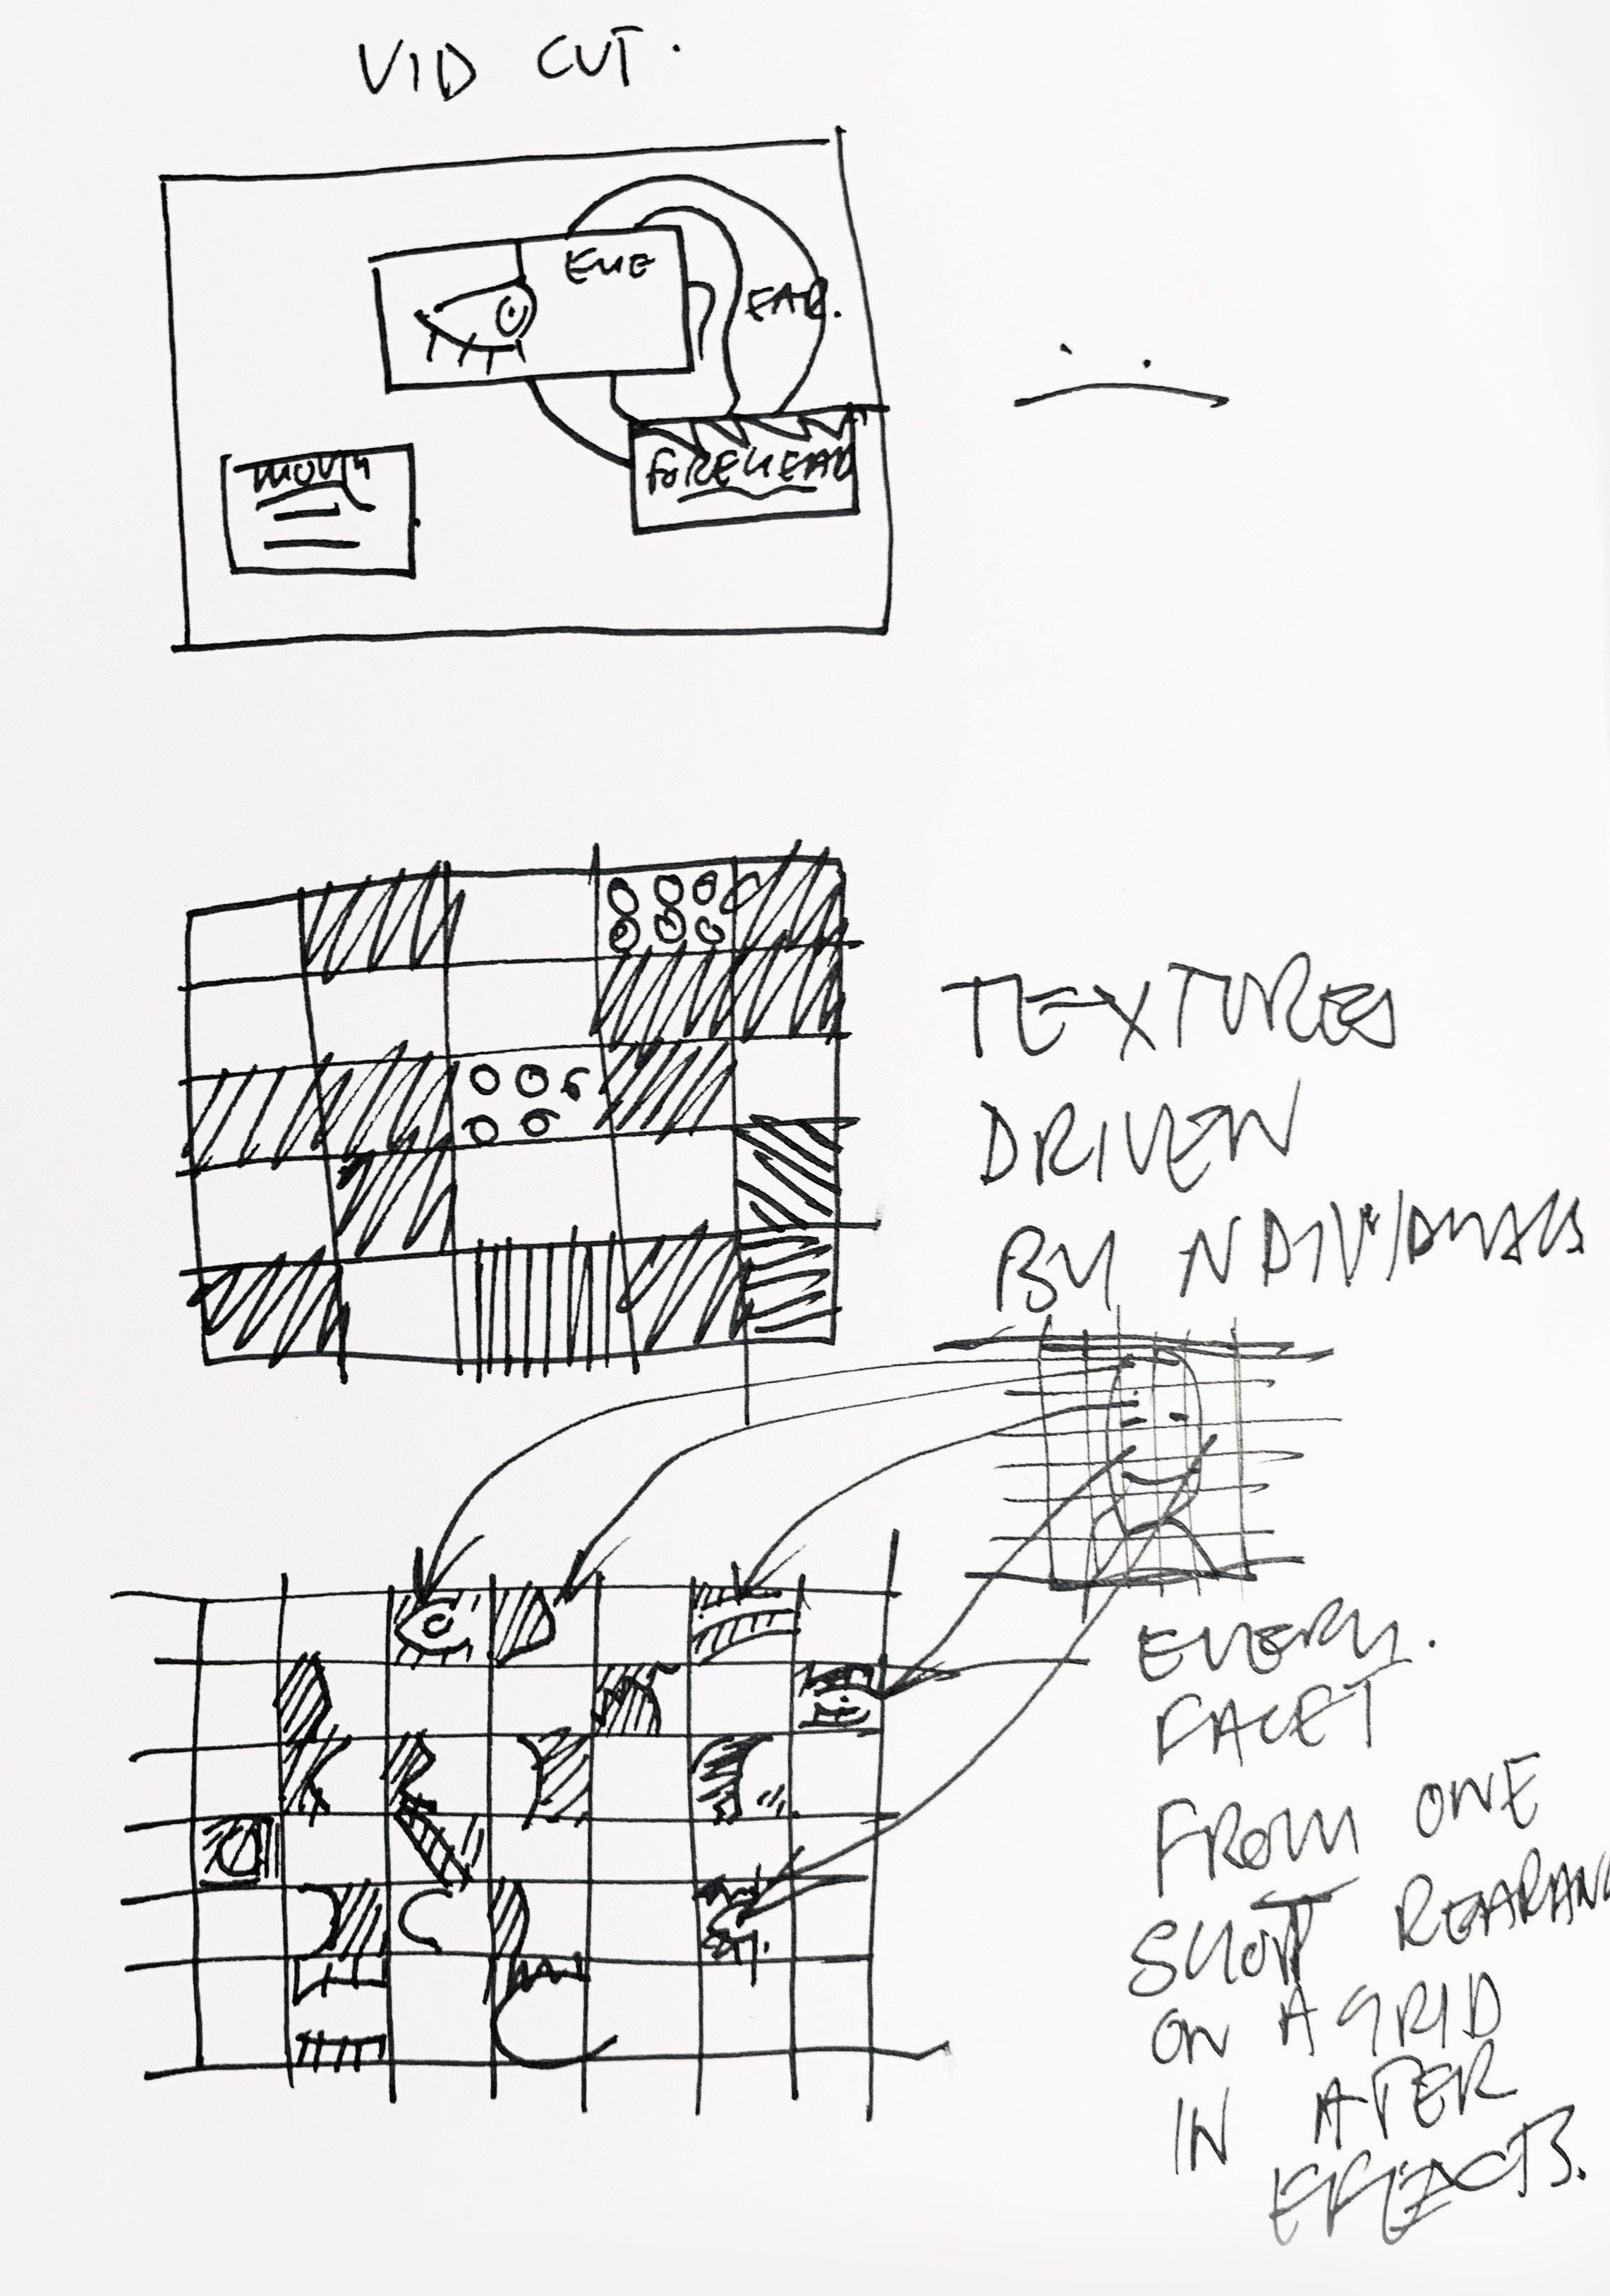 VID CUT.
EYE
EAR.
MOUTH
FOREHEAD
TEXTURES
DRIVEN
BY NDIVIDUALS
EVERY.
FACET
FROM ONE
SHOT REARANG
ON A GRID
IN AFTER
EFFECTS.